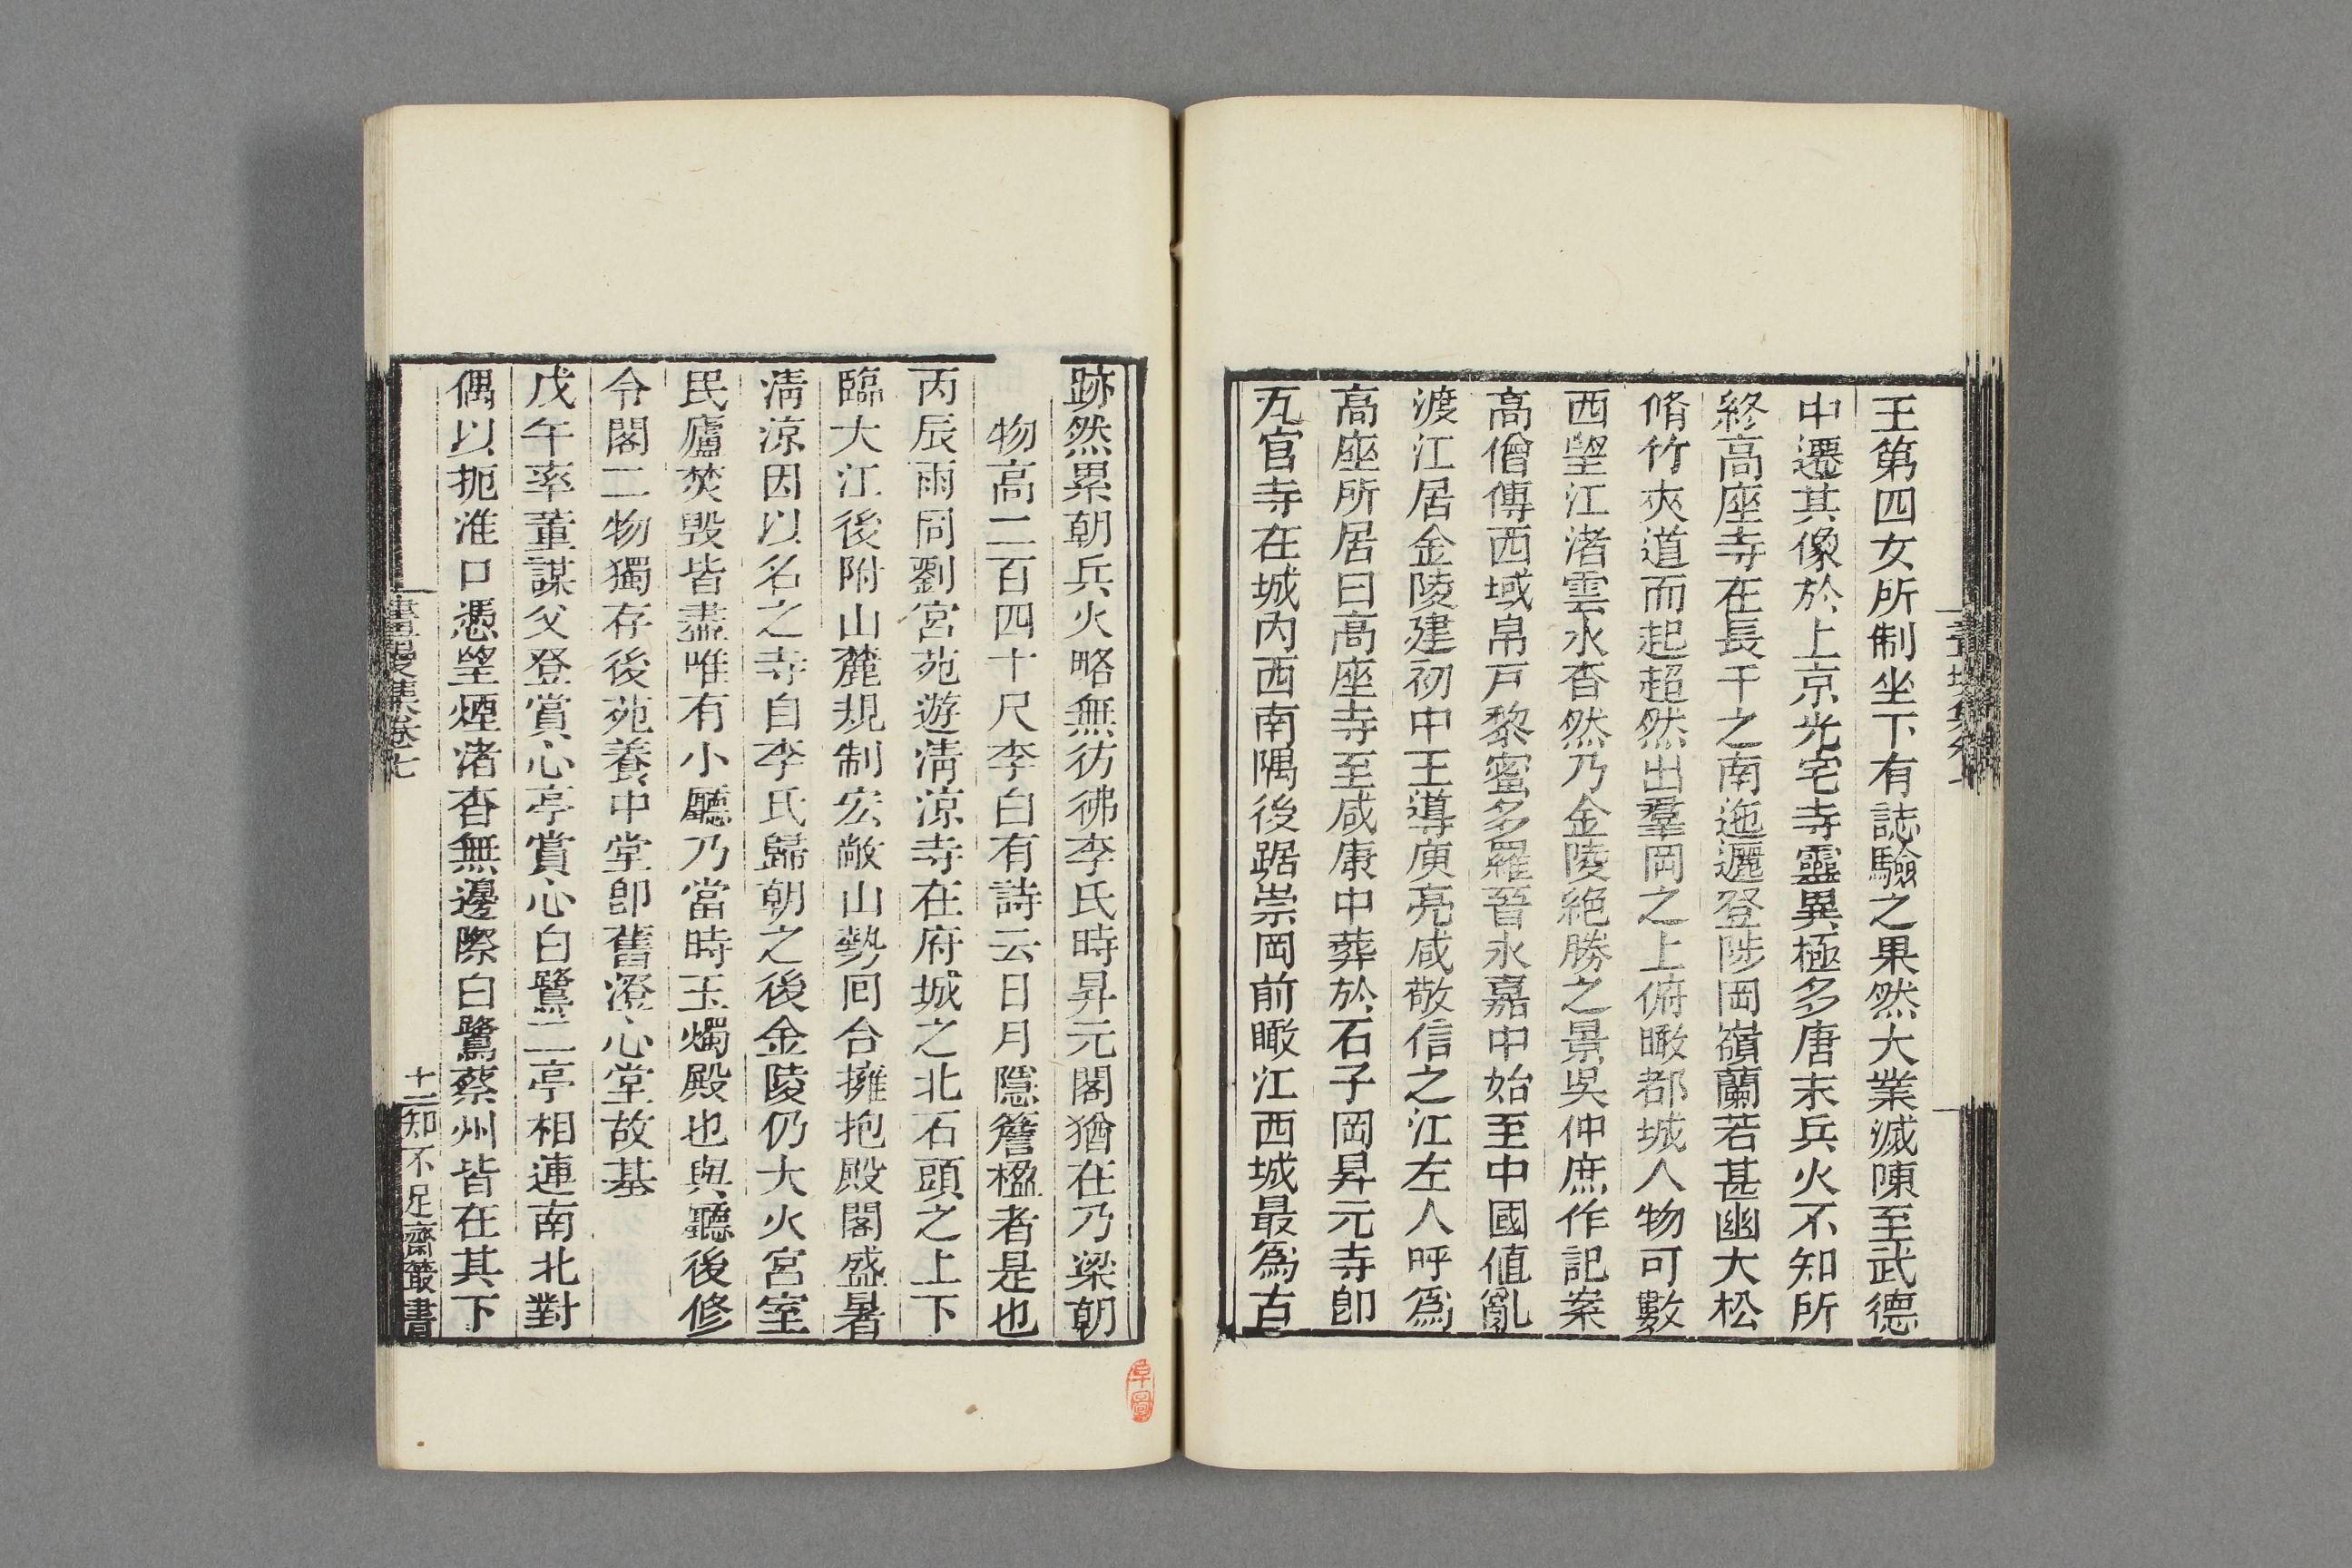 王第四女所制坐下有誌驗之果然大業滅陳至武德
中遷其像於上京光宅寺靈異極多唐末兵火不知所
終高座寺在長干之南迤邐登陟岡嶺蘭若甚幽大松
脩竹夾道而起超然出羣岡之上俯瞰都城人物可數
西望江渚雲水杳然乃金陵絶勝之景吳仲庶作記案
高僧傳西域帛戸黎蜜多羅晉永嘉中始至中國値亂
渡江居金陵建初中王導庾亮咸敬信之江左人呼爲
高座所居曰高座寺至咸康中葬於石子岡昇元寺卽
瓦官寺在城内西南隅後踞崇岡前瞰江西城最爲古
跡然累朝兵火略無彷彿李氏時昇元閣猶在乃梁朝
物高二百四十尺李白有詩云日月隱簷楹者是也
丙辰雨同劉宮苑遊淸涼寺在府城之北石頭之上下
臨大江後附山麓規制宏敞山勢囘合擁抱殿閣盛暑
淸涼因以名之寺自李氏歸朝之後金陵仍大火宮室
民廬焚毁皆盡唯有小廳乃當時玉燭殿也與聽後修
令閣二物獨存後苑養中堂卽舊澄心堂故基
戊午率董謀父登賞心亭賞心白鷺二亭相連南北對
偶以扼淮口憑望煙渚杳無邊際白鷺蔡州皆在其下
畫墁集卷七
十一
知不足齋叢書